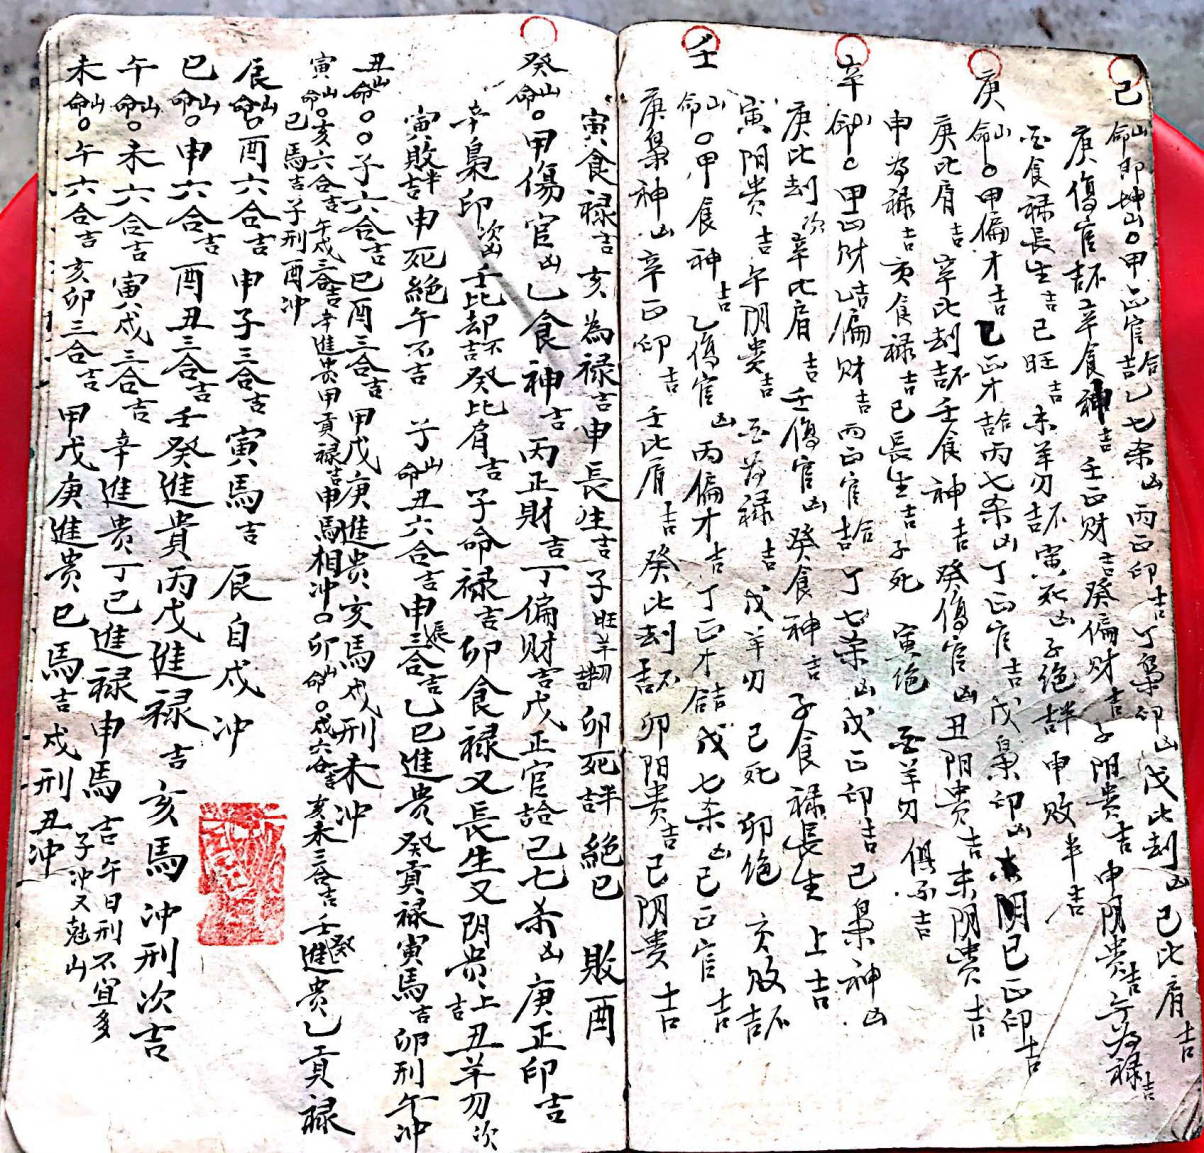 己山命即坤山○甲正官合吉乙七杀凶丙正印吉丁枭印凶戊比刦凶己比肩吉
庚傷官不吉辛食神吉壬正财吉癸偏财吉子阴贵吉申阴贵吉午为禄吉
酉食禄長生吉巳旺吉未羊刃不吉寅死凶子绝半吉申败半吉
庚山命○甲偏才吉乙正才合吉丙七杀凶丁正官吉戊枭印凶己正印吉
庚比肩吉辛比刦不吉壬食神吉癸傷官凶丑阴贵吉未阴贵吉
申为禄吉亥食禄吉巳長生吉子死 寅绝 酉羊刃 俱不吉
辛山命○甲正财吉乙偏财吉丙正官合吉丁七杀凶戊正印吉己枭神凶
庚比刦次辛比肩吉壬傷官凶癸食神吉子食禄長生上吉
寅阴贵吉午阴贵吉酉为禄吉戌羊刃 巳死 卯绝 亥败不吉
壬山命○甲食神吉乙傷官凶丙偏才吉丁正才合吉戊七杀凶己正官吉
庚枭神凶辛正印吉壬比肩吉癸比刦不吉卯阳贵吉巳阴贵十吉
寅食禄吉亥為禄吉申長生吉子旺羊刃半吉卯死半吉絕巳 敗酉
癸山命○甲傷官凶乙食神吉丙正財吉丁偏财吉戊正官合吉己七杀凶庚正印吉
辛梟印次凶壬比却不吉癸比肩吉子命禄吉卯食禄又長生又阴贵上吉丑羊刃次
寅敗半吉申死絕午不吉 子山命丑六合吉申辰三合吉乙巳進贵癸貢禄寅馬吉卯刑午冲
丑山命○○子六合吉巳酉三合吉甲戊庚進贵亥馬戌刑未冲
寅山命○亥六合吉午戌三合吉辛進贵甲貢禄吉申馬相冲○卯山命○戌六合吉亥未三合吉壬癸進贵乙貢禄
巳馬吉子刑酉冲
辰山命○酉六合吉申子三合吉寅馬吉 辰自戌冲
巳山命○申六合吉酉丑三合吉壬癸進貴丙戊進禄吉亥馬冲刑次吉
午山命○未六合吉寅戌三合吉辛進贵丁己進禄申馬吉午日刑不宜多
子冲又尅山
未山命○午六合吉亥卯三合吉甲戊庚進贵巳馬吉戌刑丑冲